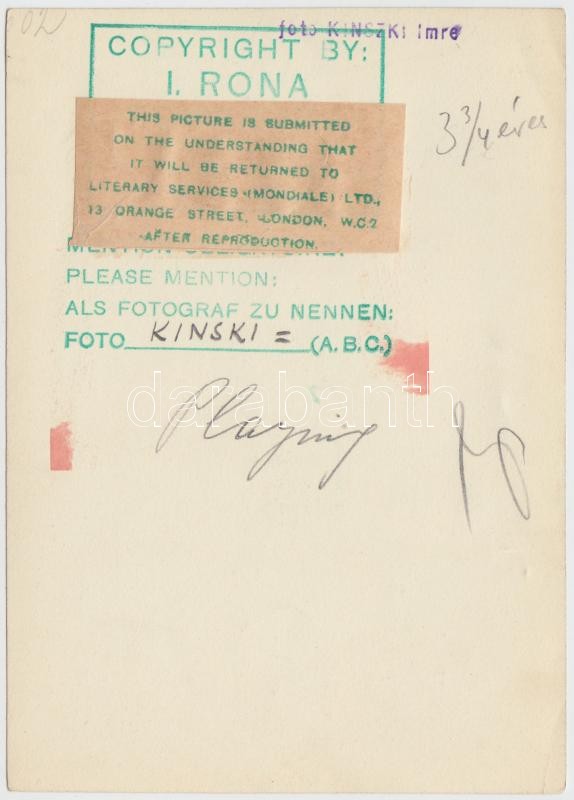 02
foto KINSZKI Imre
COPYRIGHT BY:
I. RONA
3 3/4 éves
THIS PICTURE IS SUBMITTED
ON THE UNDERSTANDING THAT
IT WILL BE RETURNED TO
LITERARY SERVICES (MONDIALE) LTD.,
13 ORANGE STREET, LONDON, W.C.2
AFTER REPRODUCTION.
MENTION OBLIGATOIRE:
PLEASE MENTION:
ALS FOTOGRAF ZU NENNEN:
FOTO KINSKI = (A.B.C.)
darabanth
Playing